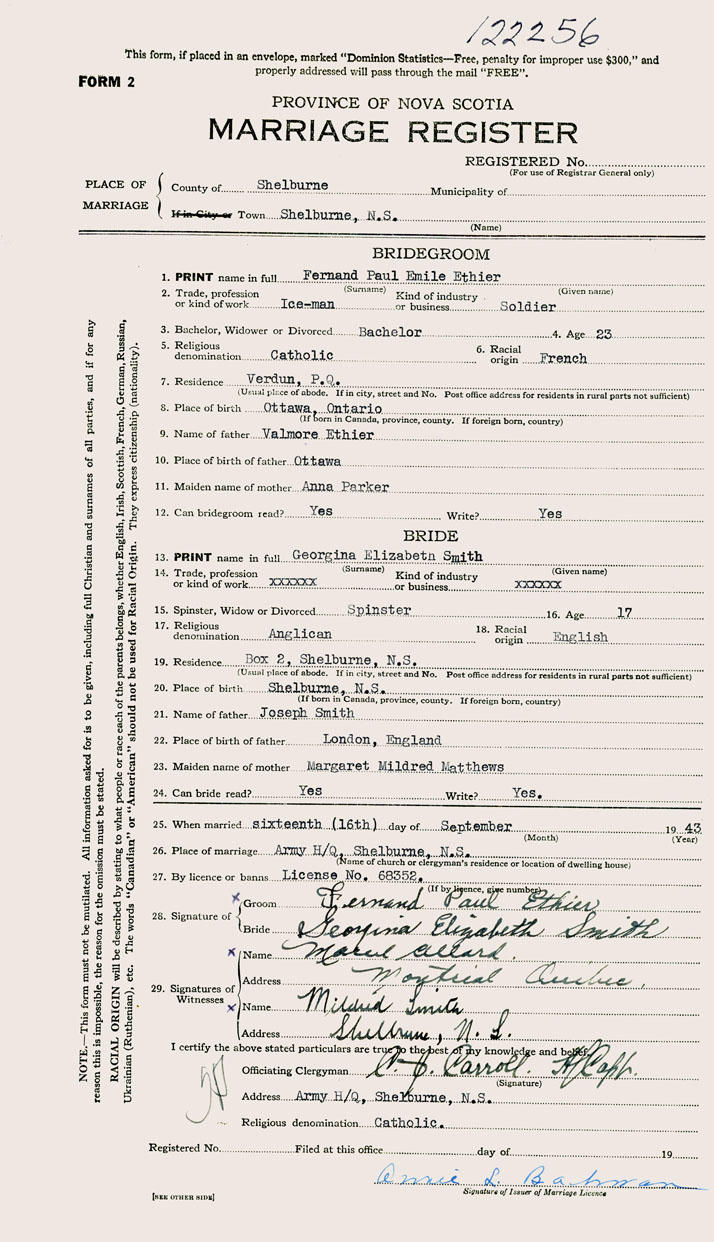 122256
This form, if placed in an envelope, marked "Dominion Statistics—Free, penalty for improper use $300," and
properly addressed will pass through the mail "FREE".
FORM 2
PROVINCE OF NOVA SCOTIA
MARRIAGE REGISTER
REGISTERED No.
(For use of Registrar General only)
PLACE OF MARRIAGE
County of Shelburne Municipality of
If in City or Town Shelburne, N.S.
(Name)
BRIDEGROOM
1. PRINT name in full Fernand Paul Emile Ethier
(Surname) (Given name)
2. Trade, profession or kind of work Ice-man Kind of industry or business Soldier
3. Bachelor, Widower or Divorced Bachelor 4. Age 23
5. Religious denomination Catholic 6. Racial origin French
7. Residence Verdun, P.Q.
(Usual place of abode. If in city, street and No. Post office address for residents in rural parts not sufficient)
8. Place of birth Ottawa, Ontario
(If born in Canada, province, county. If foreign born, country)
9. Name of father Valmore Ethier
10. Place of birth of father Ottawa
11. Maiden name of mother Anna Parker
12. Can bridegroom read? Yes Write? Yes
BRIDE
13. PRINT name in full Georgina Elizabeth Smith
(Surname) (Given name)
14. Trade, profession or kind of work xxxxxx Kind of industry or business xxxxxx
15. Spinster, Widow or Divorced Spinster 16. Age 17
17. Religious denomination Anglican 18. Racial origin English
19. Residence Box 2, Shelburne, N.S.
(Usual place of abode. If in city, street and No. Post office address for residents in rural parts not sufficient)
20. Place of birth Shelburne, N.S.
(If born in Canada, province, county. If foreign born, country)
21. Name of father Joseph Smith
22. Place of birth of father London, England
23. Maiden name of mother Margaret Mildred Matthews
24. Can bride read? Yes Write? Yes.
25. When married sixteenth (16th) day of September 19 43
(Month) (Year)
26. Place of marriage Army H/Q, Shelburne, N.S.
(Name of church or clergyman's residence or location of dwelling house)
27. By licence or banns License No. 68352.
(If by licence, give number)
28. Signature of
x Groom Fernand Paul Ethier
Bride Georgina Elizabeth Smith
29. Signatures of Witnesses
x Name Allard.
Address Montrial Quebec.
x Name Mildred Smith
Address Shelburne, N.S.
I certify the above stated particulars are true to the best of my knowledge and belief.
Officiating Clergyman Carroll
(Signature)
Address Army H/Q, Shelburne, N.S.
Religious denomination Catholic.
Registered No. Filed at this office day of 19
Annie L. Bahman
Signature of Issuer of Marriage Licence
[SEE OTHER SIDE]
NOTE.—This form must not be mutilated. All information asked for is to be given, including full Christian and surnames of all parties, and if for any
reason this is impossible, the reason for the omission must be stated.
RACIAL ORIGIN will be described by stating to what people or race each of the parents belongs, whether English, Irish, Scottish, French, German, Russian,
Ukrainian (Ruthenian), etc. The words "Canadian" or "American" should not be used for Racial Origin. They express citizenship (nationality).